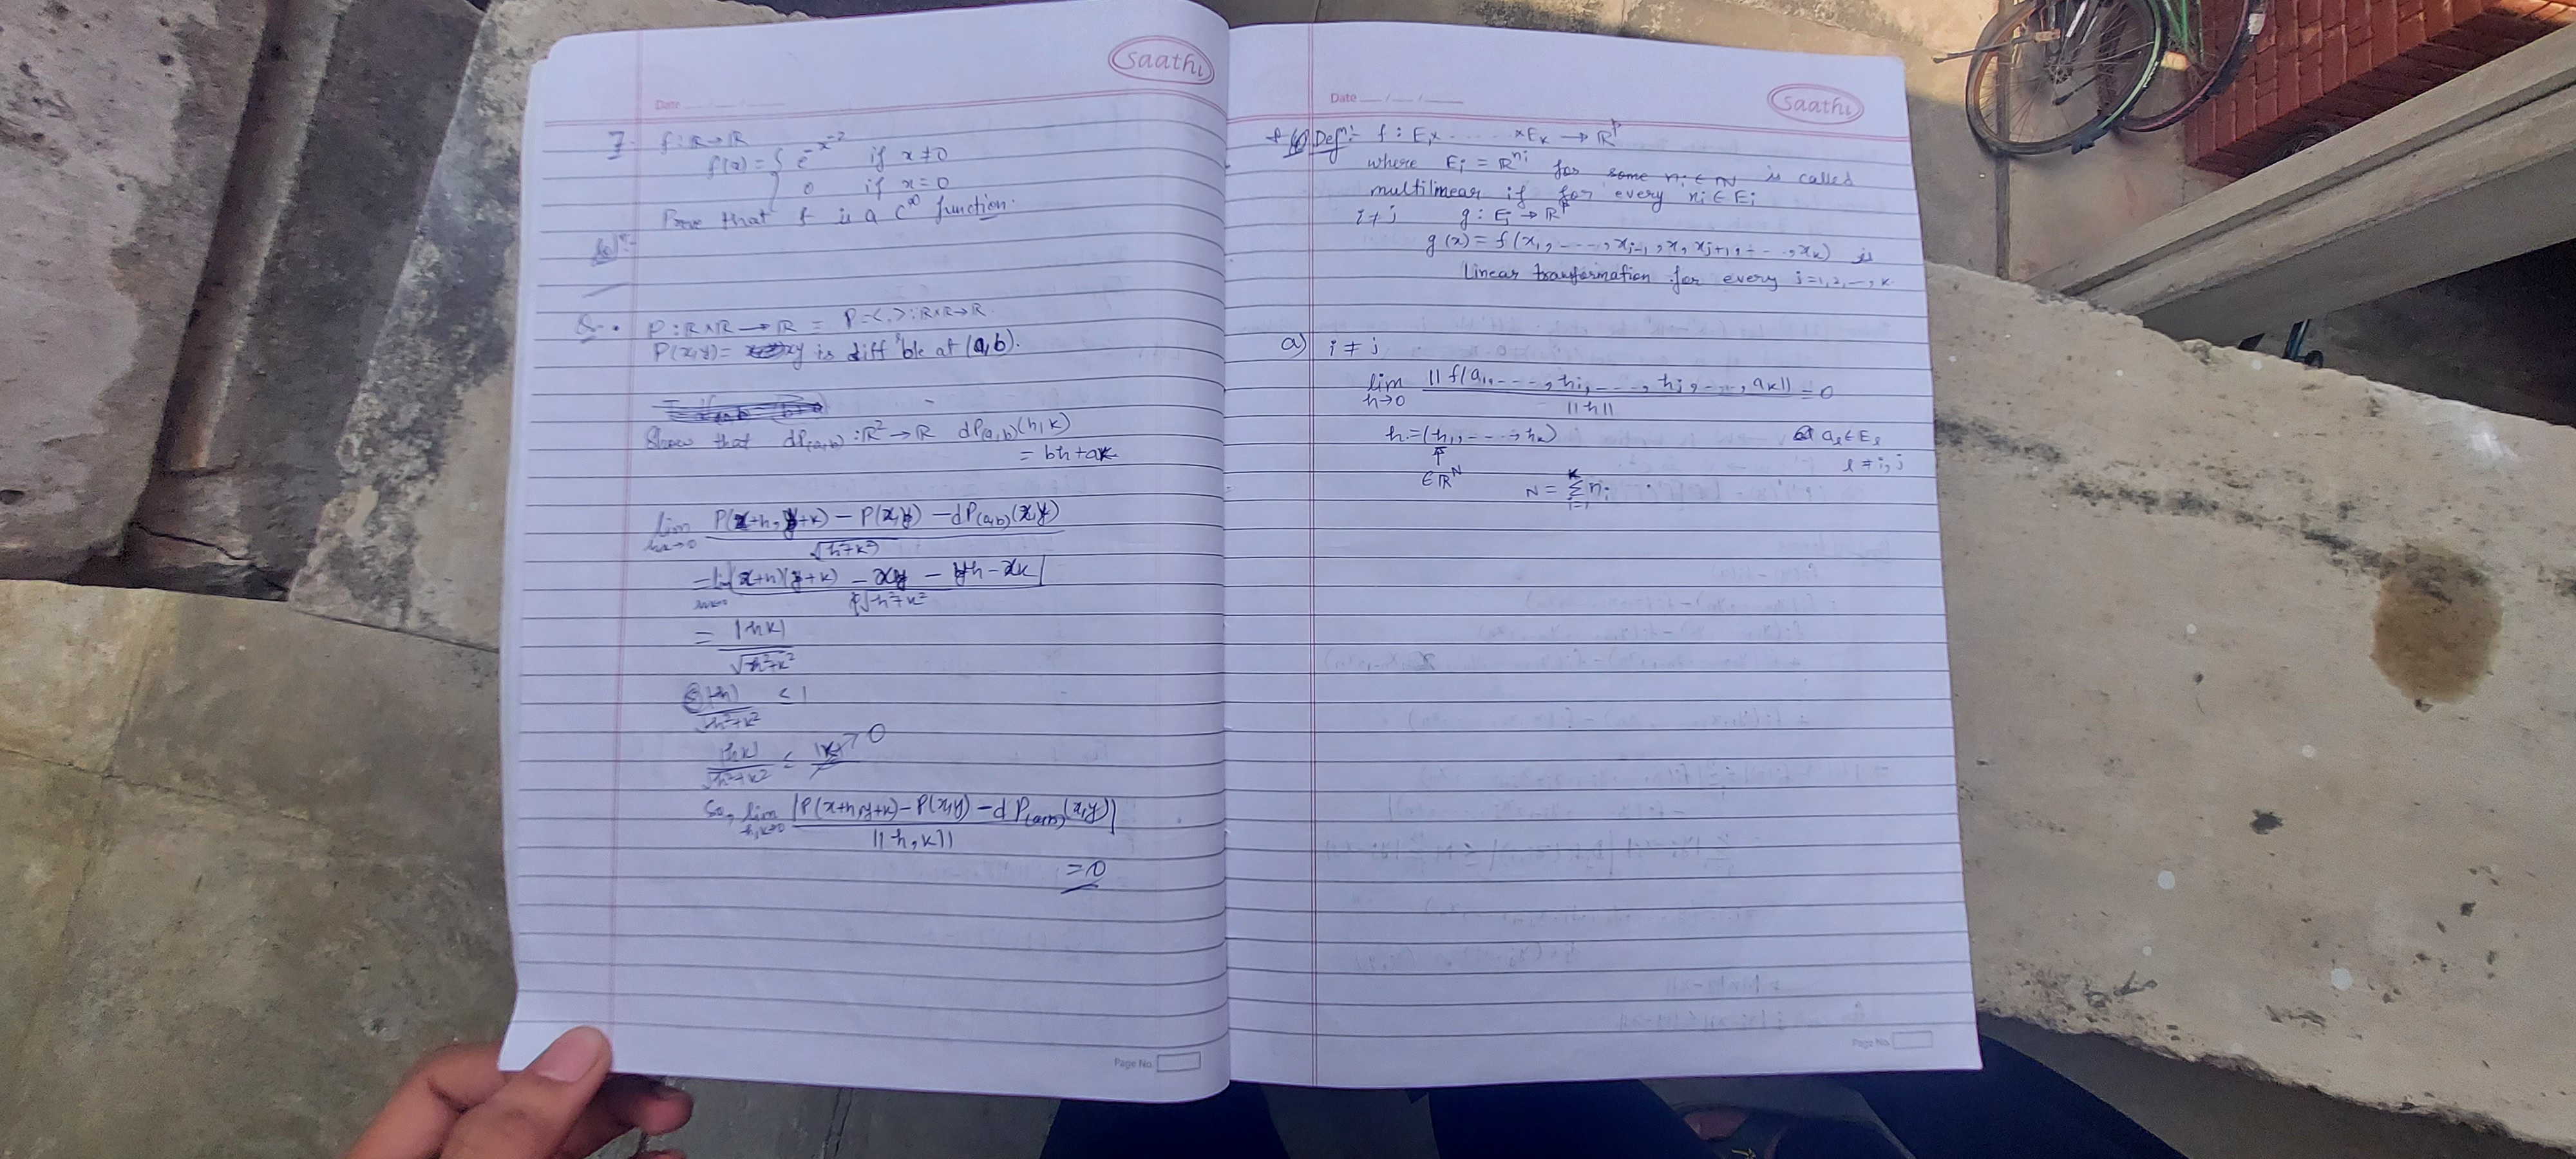 Date
saathi
7. f: R→R
f(x) = { e^{-x^{-2}} if x≠0
0 if x=0
Prove that f is a C^∞ function.
Sol^n:
8. P: R×R → R = P=<,>: R×R→R.
P(x,y) = xy is diff'ble at (a,b).
Show that dP(a,b): R² → R dP(a,b)(h,k)
= bh+ak
lim P(x+h, y+k) - P(x,y) - dP(a,b)(x,y)
h,k→0 √h²+k²
= |(x+h)(y+k) - xy - yh - xk|
√h²+k²
= |hk|
√h²+k²
|h| < 1
√h²+k²
|hk| < |k| → 0
√h²+k²
So, lim |P(x+h,y+k) - P(x,y) - dP(a,b)(x,y)|
h,k→0 ||h,k||
=0
Page No.
Date
saathi
Def^n: f: E₁x......xE_k → R^p
where E_i = R^{n_i} for some n_i ∈ N is called
multilinear if for every x_i ∈ E_i
i≠j g: E_j → R^p
g(x) = f(x₁,---,x_{j-1}, x, x_{j+1},---,x_k) is
linear transformation for every j=1,2,--,k
a) i≠j
lim ||f(a₁,---,h_i,---,h_j,---,a_k)|| = 0
h→0 ||h||
h=(h₁,....,h_k) a_l ∈ E_l
∈ R^N l≠i,j
N = Σ_{i=1}^{k} n_i
Page No.